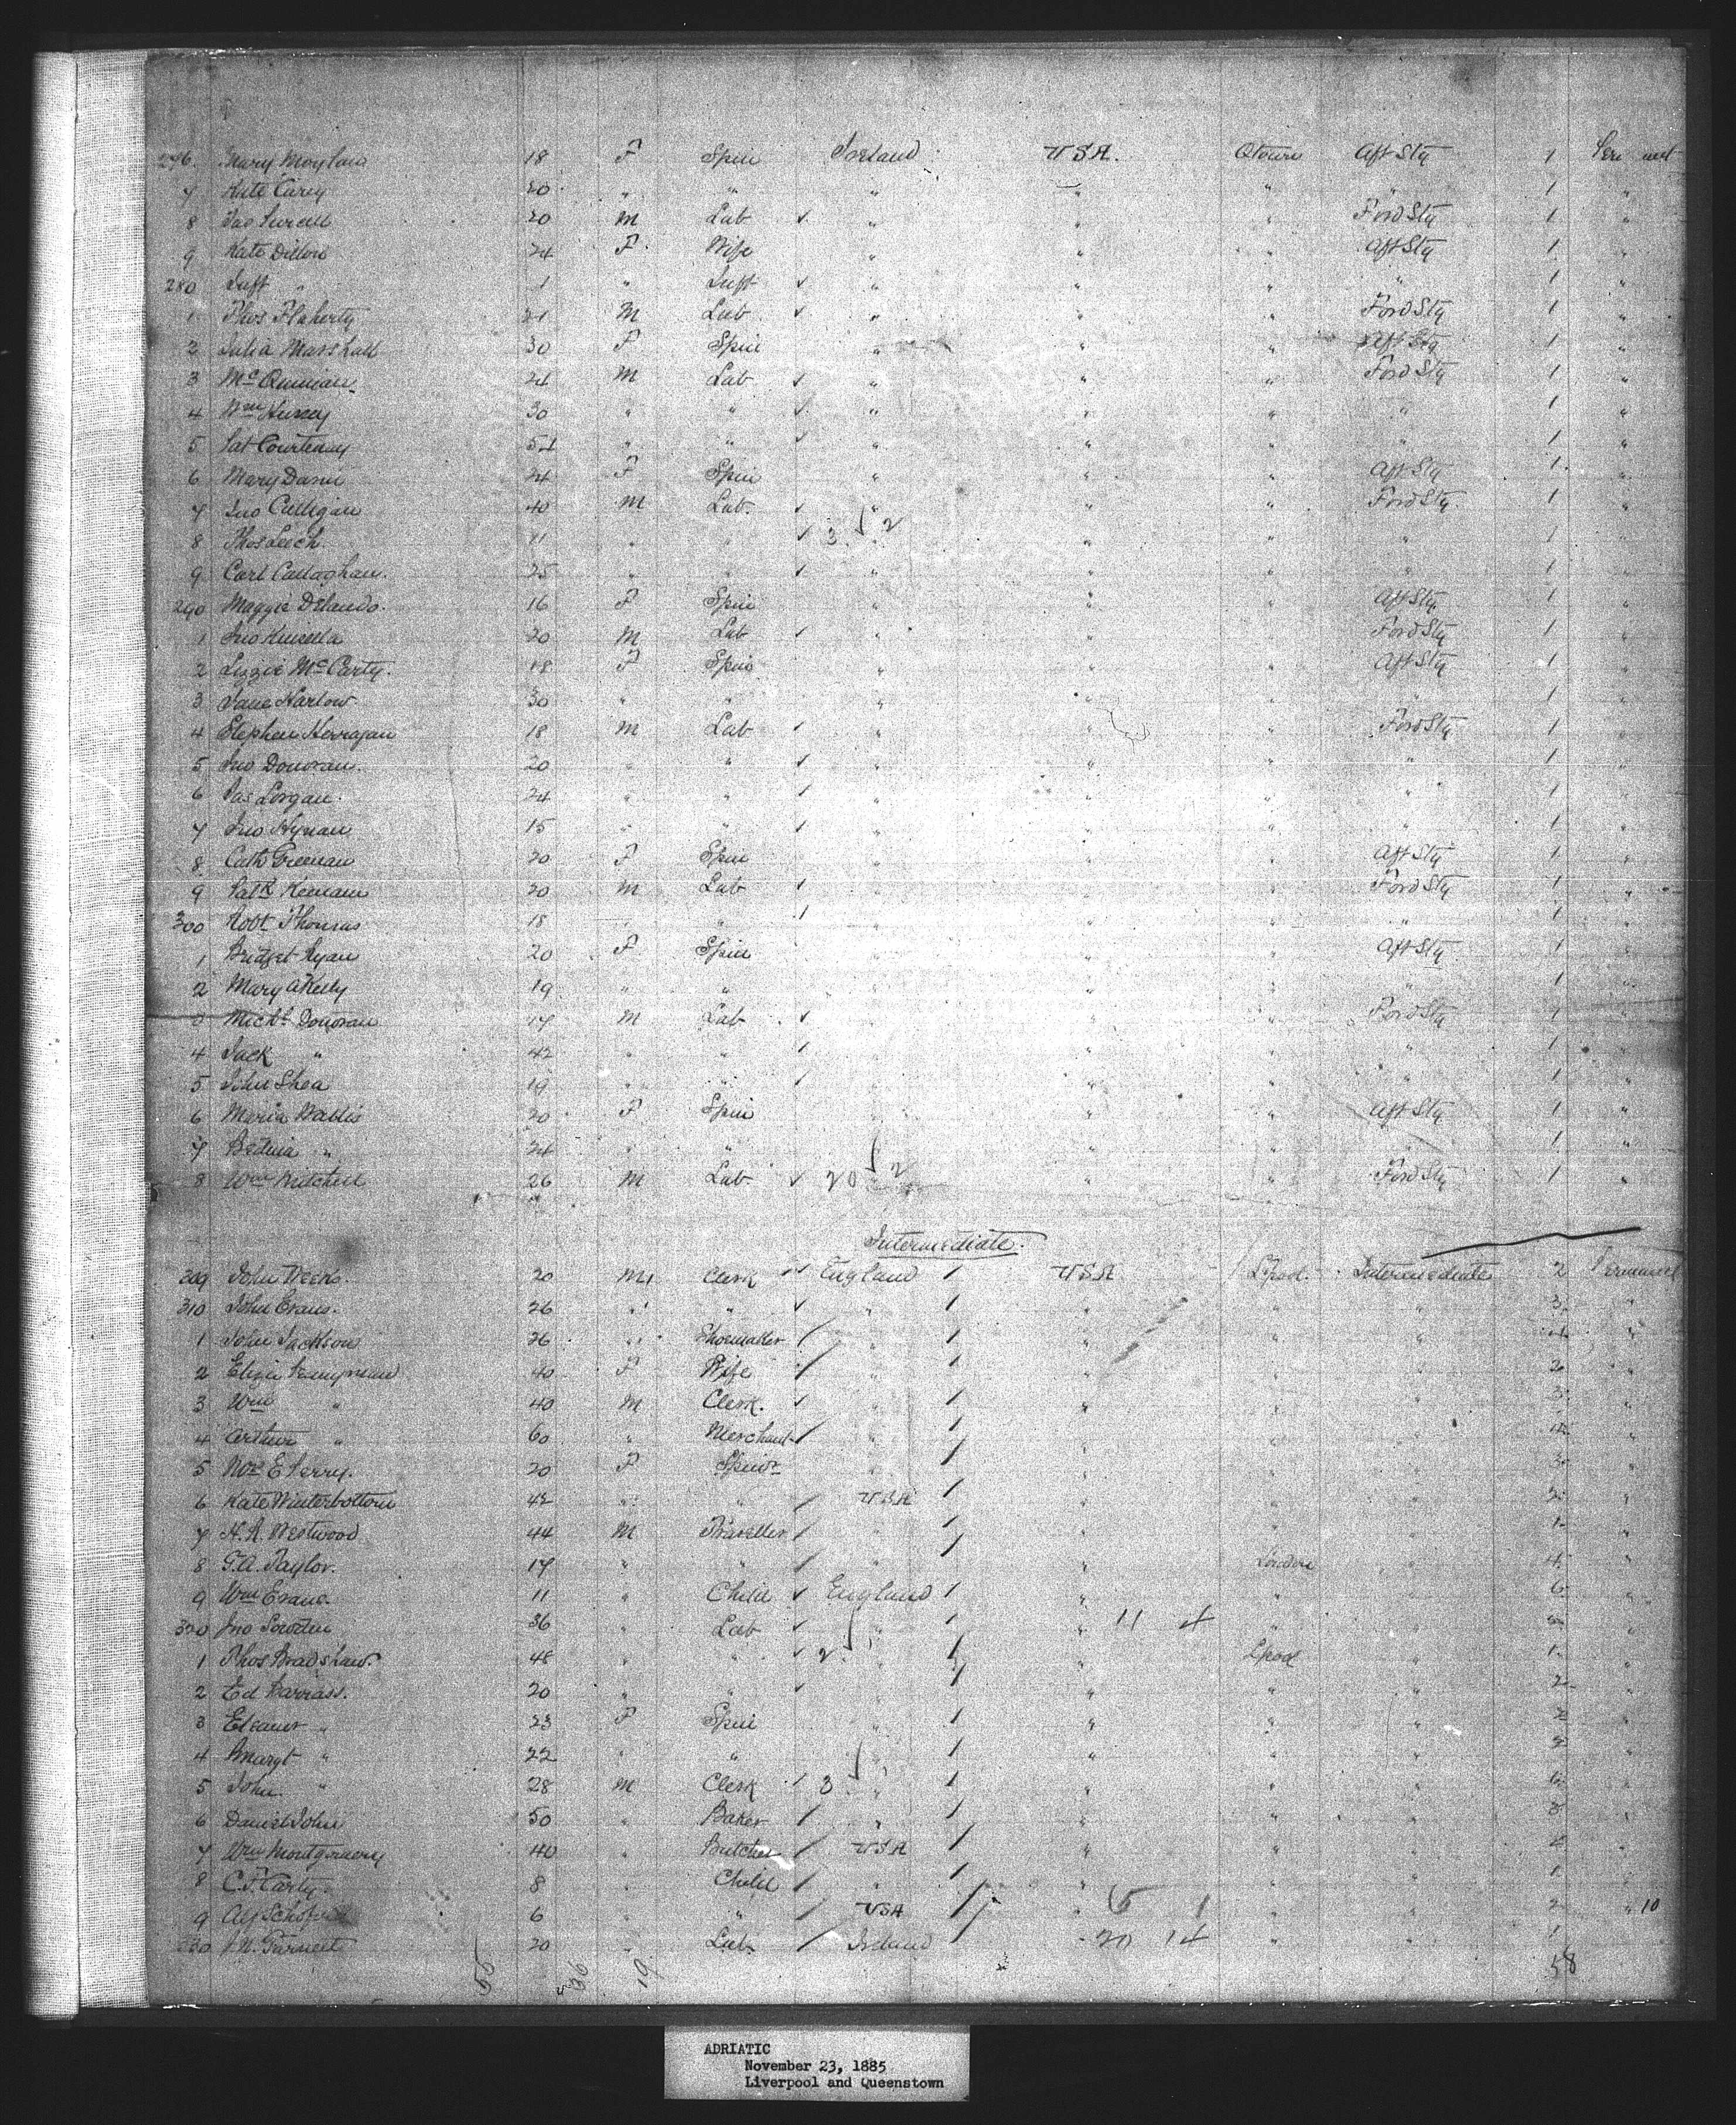 276. Mary Moylan 18 F Spin Ireland USA. Qtown Aft Stg 1
7 Kate Carey 20 " " " " " 1 "
8 Jas Purcell 20 M Lab ✓ " " " Ford Stg 1 "
9 Kate Dillon 24 F Wife " " " Aft Stg 1 "
280 Inft " 1 " Inft ✓ " " " " 1 "
1 Thos Flaherty 21 M Lab ✓ " " " Ford Stg 1 "
2 Julia Marshall 30 F Spin " " " Aft Stg 1 "
3 Mc Quinian 24 M Lab ✓ " " " Ford Stg 1 "
4 Wm 30 " " ✓ " " " " 1 "
5 Pat Courtenay 54 " " ✓ " " " " 1 "
6 Mary Dann 24 F Spin " " " Aft Stg 1 "
7 Jno Culligan 40 M Lab. ✓ " " " Ford Stg. 1 "
8 Thos Leech. " " ✓ 3 2 " " " 1 "
9 Carl Callaghan. 25 " " ✓ " " " " 1 "
290 Maggie 16 F Spin " " " Aft Stg. 1 "
1 Jno Kinsella 20 M Lab ✓ " " " Ford Stg 1 "
2 Lizzie McCarty. 18 F Spin " " " Aft Stg 1 "
3 Jane Harlow 30 " " " " " " 1 "
4 Stephen Kerragan 18 M Lab ✓ " " " Ford Stg 1 "
5 Jno Donovan. 20 " " ✓ " " " " 1 "
6 Jas Lorgan. 24 " " ✓ " " " " 1 "
7 Jno Hynan 15 " " ✓ " " " " 1 "
8 Cath Greenan 20 F Spin " " " Aft Stg 1 "
9 Patk Keenan 20 M Lab ✓ " " " Ford Stg 1 "
300 Robt Thomas 18 " " ✓ " " " " 1 "
1 Bridget Ryan 20 F Spin " " " Aft Stg 1 "
2 Mary A Kelly 19 " " " " " " 1 "
3 Michl Donovan 17 M Lab ✓ " " " Ford Stg 1 "
4 Jack " 42 " " ✓ " " " " 1 "
5 John Shea 19 " " ✓ " " " " 1 "
6 Maria Wallis 20 F Spin " " " Aft Stg 1 "
7 " 24 " " " " " " 1 "
8 Wm Mitchell 26 M Lab ✓ 20 2 " " Ford Stg 1 "
Intermediate.
309 John Weeks. 20 M Clerk ✓ England USA L'pool. Intermediate 2
310 John Evans. 26 " " ✓ " " " " 3 "
1 John Jackson 26 " Shoemaker " " " " "
2 Eliza 40 F Wife " " " " 2 "
3 Wm " 40 M Clerk. ✓ " " " " 3 "
4 Arthur " 60 " Merchant " " " " "
5 E Perry. 20 F " " " " 3 "
6 Kate Winterbottom 42 " " USA " " " "
7 H. A. Westwood 44 M Traveller " " " " 1 "
8 G. A. Taylor. 17 " " " " London " 4 "
9 Wm Evans. 11 " Child ✓ England " " " 6 "
320 Jno 36 " Lab ✓ " " 11 4 " " "
1 Thos Bradshaw. 48 " " ✓ 2 " " Lpool " 1 "
2 Ed Barrass. 20 " " ✓ " " " " 2 "
3 Eleanor " 23 F Spin " " " " 2 "
4 Margt " 22 " " " " " " 2 "
5 John " 28 M Clerk 3 " " " " 6 "
6 Daniel John 50 " Baker " " " " 3 "
7 Wm Montgomery 40 " Butcher USA " " " "
8 C. F. Carty. 8 " Child " " " " 1 "
9 6 " " USA " 6 1 " " 2 " 10
330 20 " Lab Ireland 20 14 " " 1
55 36 19 58
ADRIATIC
November 23, 1885
Liverpool and Queenstown